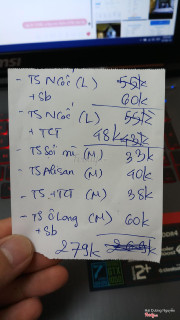 - TS Ngốc (L) 55k
+ Sb 60k
- TS Ngốc (L) 55k
+ TCT 48k 43k
- TS Sôi mã (M) 33k
- TS Alisan (M) 40k
- TS + TCT (M) 38k
- TS Ô Long (M) 60k
+ Sb
279k
12+